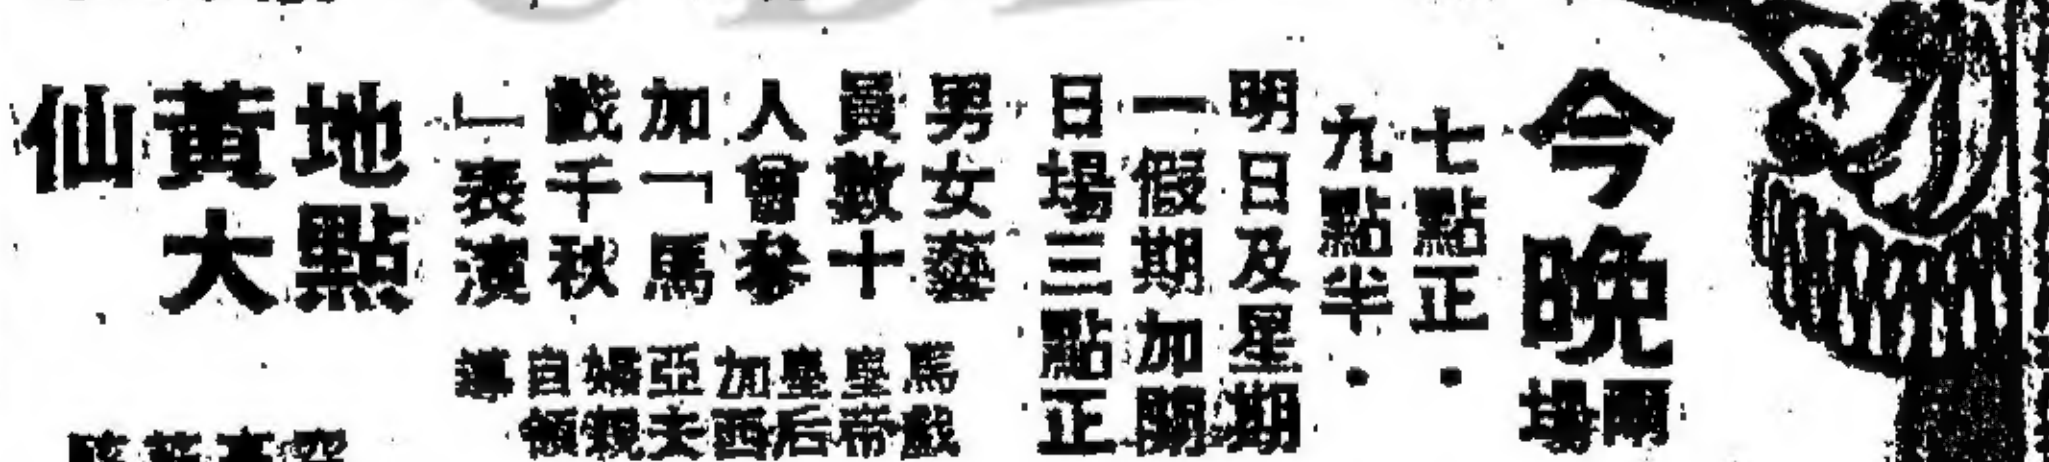 今晚兩場
七點正・
九點半・
明日及星期
一假期加開
日場三點正
男女藝
員數十
人曾參
加「馬
戲千秋
」表演
馬戲
皇帝
皇后
加西
亞夫
婦親
自領
導
地點
黃大
仙